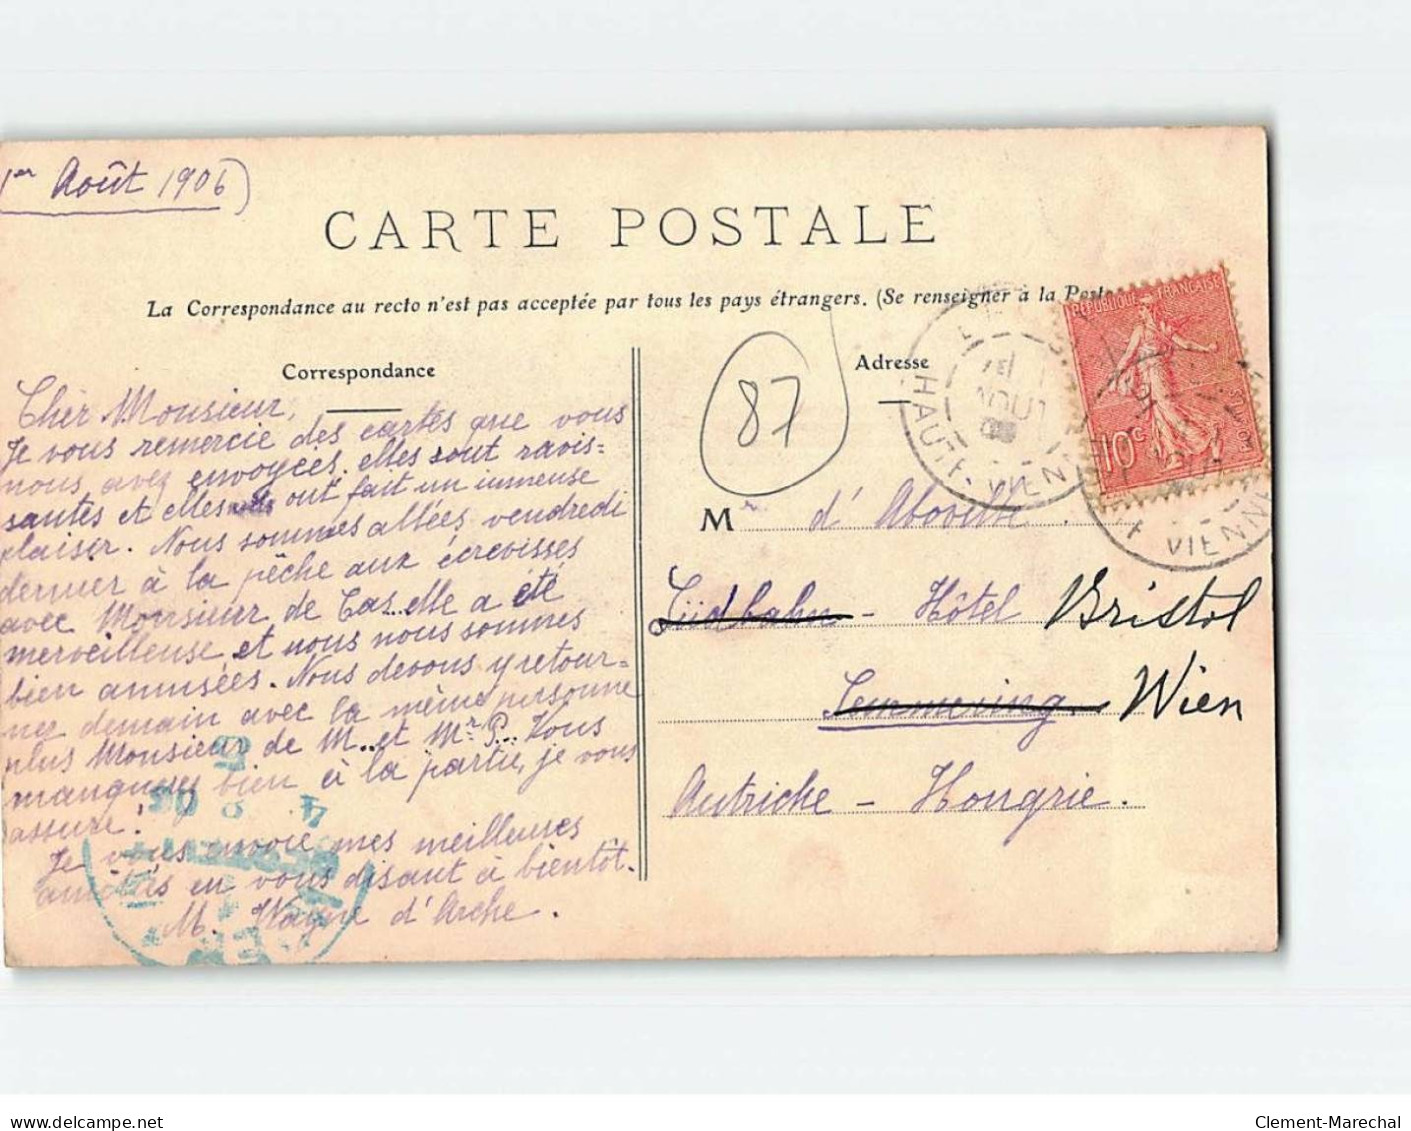 1er Août 1906
CARTE POSTALE
La Correspondance au recto n'est pas acceptée par tous les pays étrangers. (Se renseigner à la Poste
Correspondance
Cher Monsieur,
Je vous remercie des cartes que vous
nous avez envoyées, elles sont ravis-
santes et elles ont fait un immense
plaisir. Nous sommes allées vendredi
dernier à la pêche aux écrevisses
avec Monsieur de Cas..elle a été
merveilleuse et nous nous sommes
bien amusées. Nous devons y retour-
ner demain avec la même personne
plus Monsieur de M... et Mr P... Vous
manquez bien à la partie, je vous
assure!
Je vous envoie mes meilleures
amitiés en vous disant à bientôt.
M. Wayne d'Arche.
87
Adresse
REPUBLIQUE FRANÇAISE
10c
HAUTE-VIENNE
AOUT
VIENNE
Mr d'Aboville
Südbahn - Hôtel Bristol
Semmering Wien
Autriche - Hongrie.
delcampe.net
Clement-Marechal